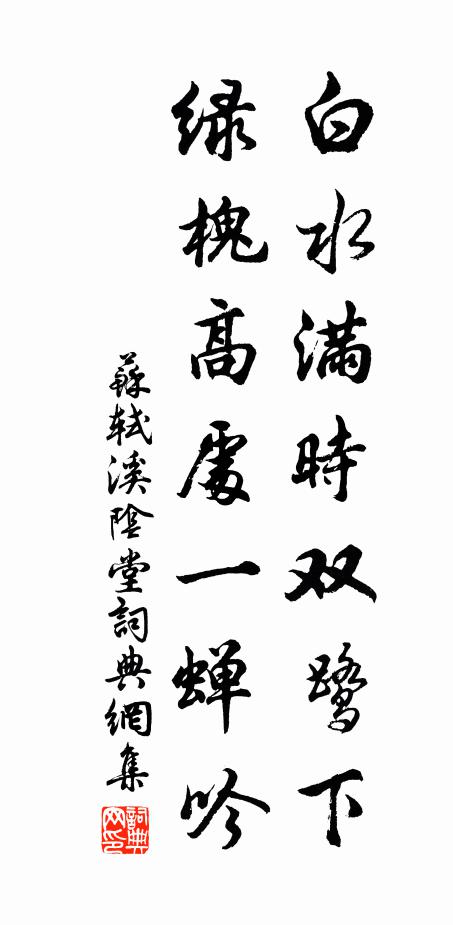 白水满時双鹭下
绿槐高處一蝉吟
蘇軾溪陰堂詞典網集
詞典
网印